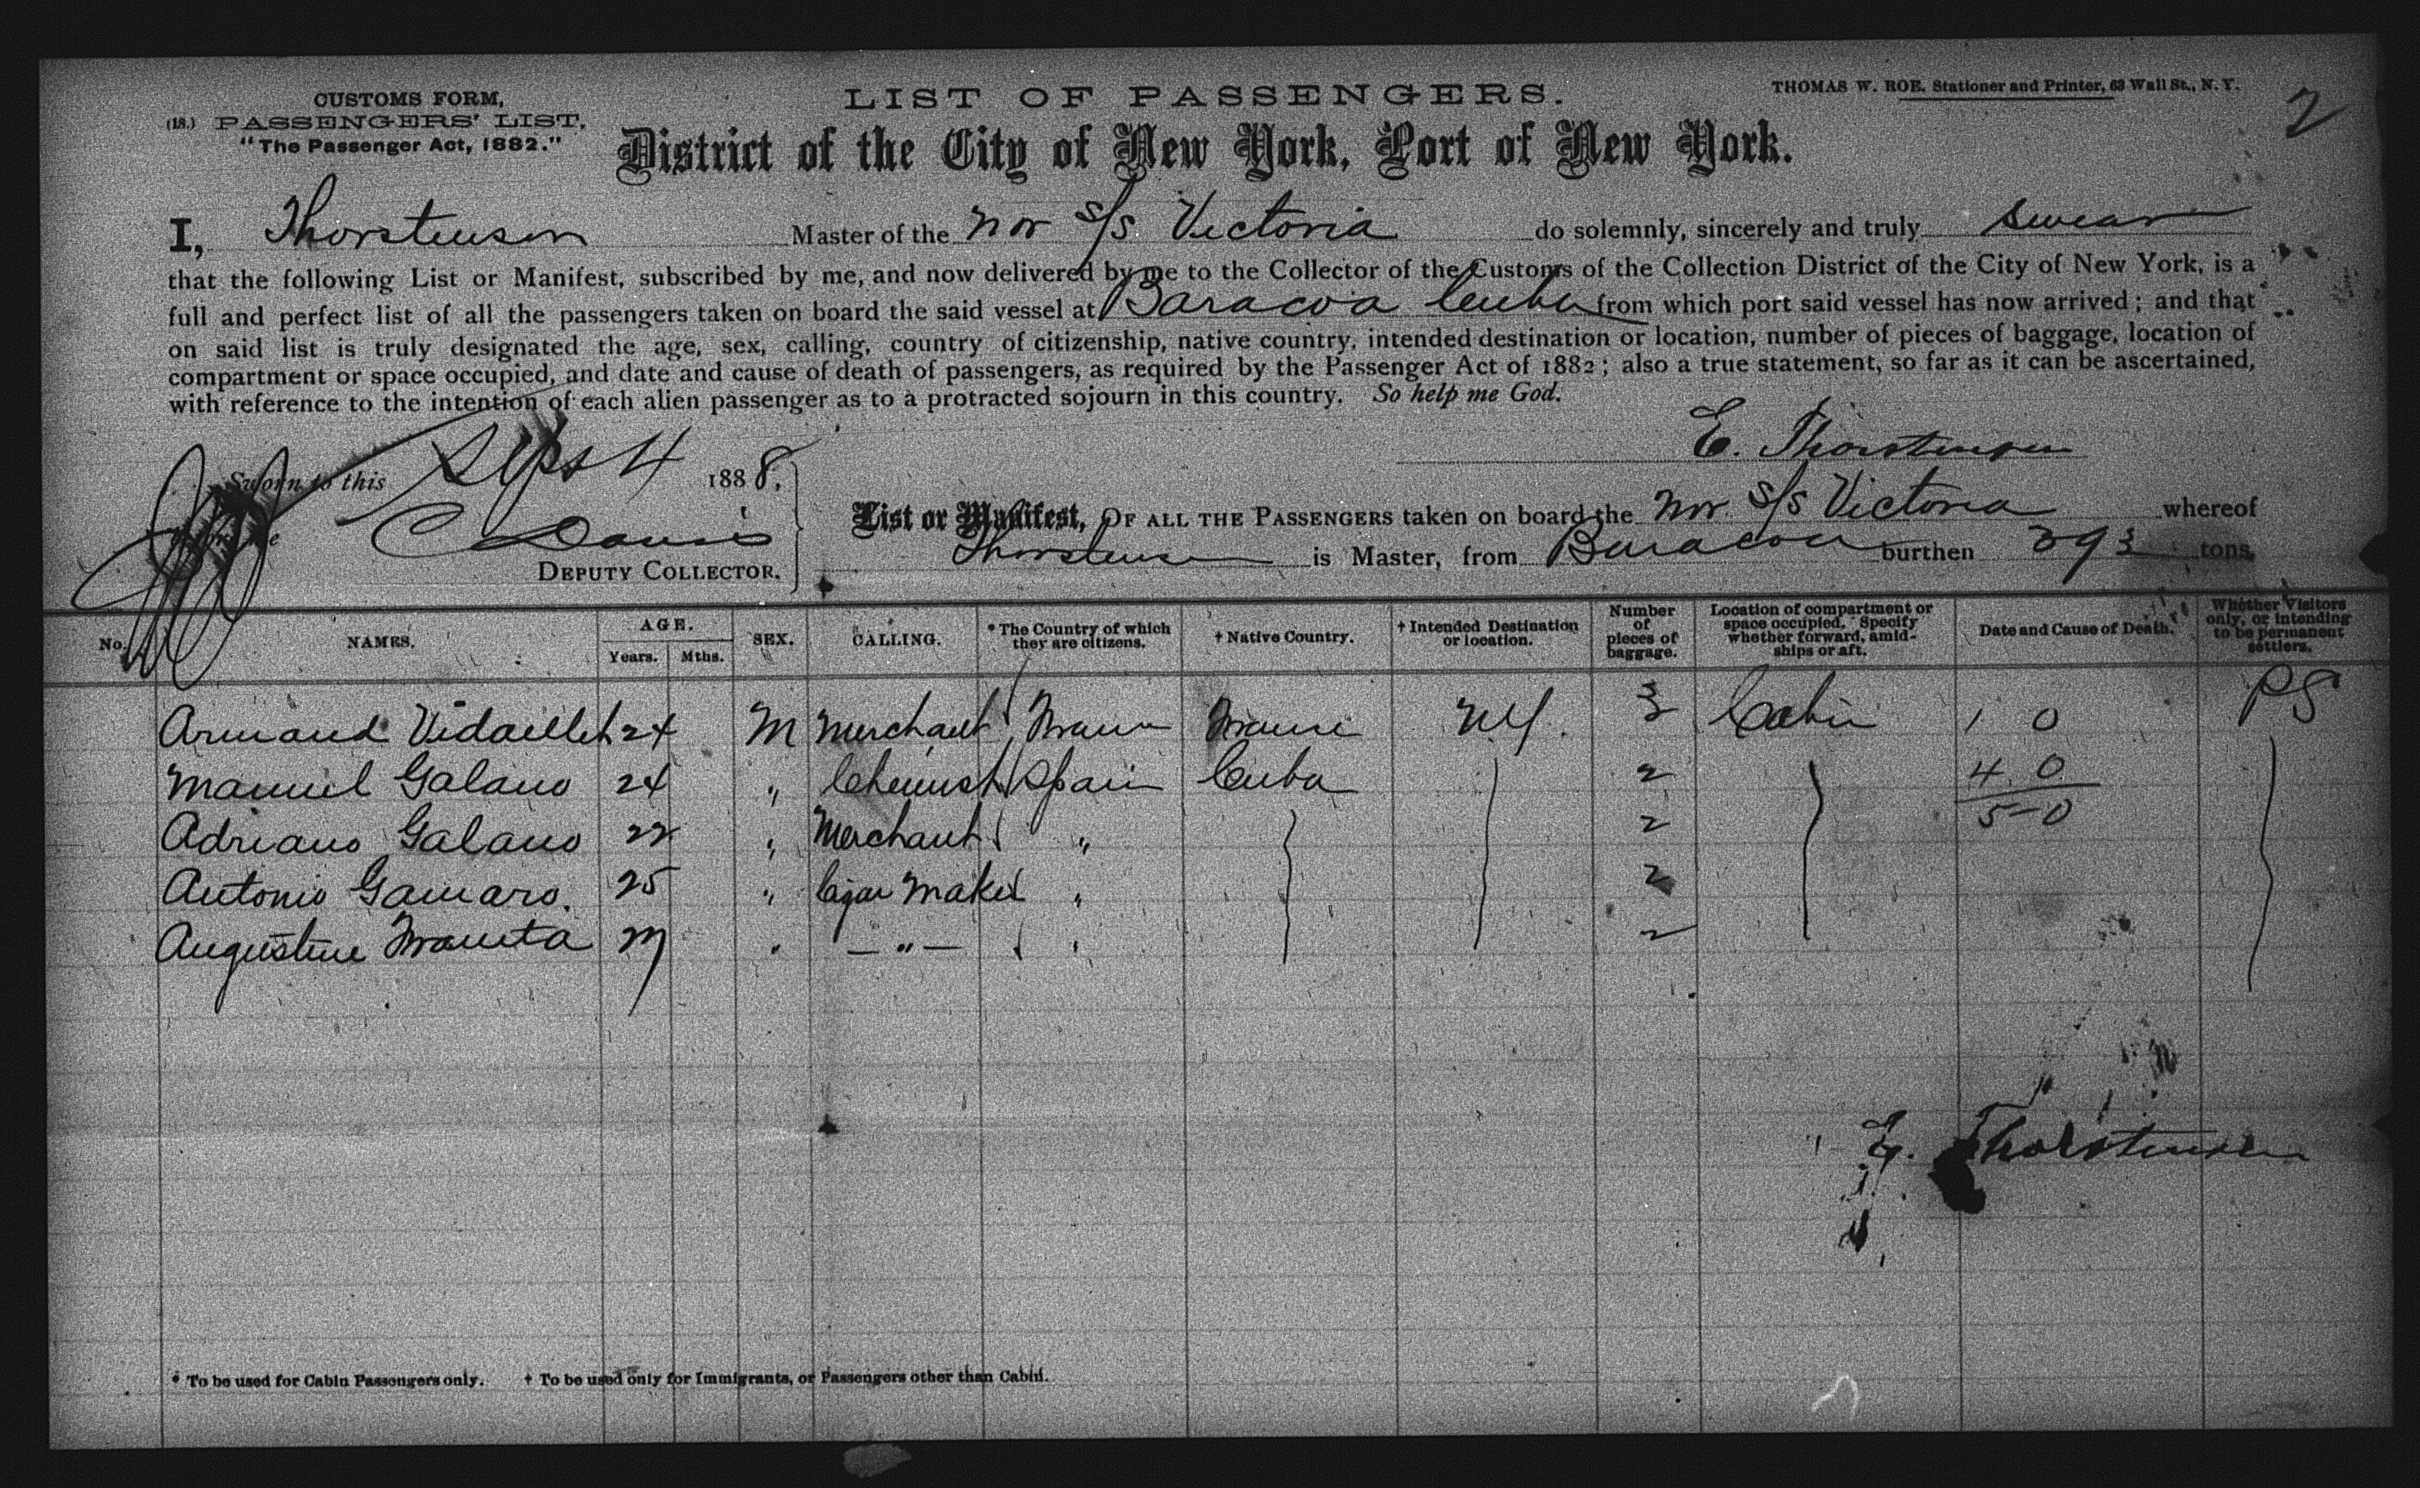 CUSTOMS FORM,
(18.) PASSENGERS' LIST,
"The Passenger Act, 1882."
LIST OF PASSENGERS.
THOMAS W. ROE, Stationer and Printer, 63 Wall St., N. Y.
2
District of the City of New York, Port of New York.
I, Thorstensen Master of the Nor S/S Victoria do solemnly, sincerely and truly swear
that the following List or Manifest, subscribed by me, and now delivered by me to the Collector of the Customs of the Collection District of the City of New York, is a
full and perfect list of all the passengers taken on board the said vessel at Baracoa Cuba from which port said vessel has now arrived; and that
on said list is truly designated the age, sex, calling, country of citizenship, native country, intended destination or location, number of pieces of baggage, location of
compartment or space occupied, and date and cause of death of passengers, as required by the Passenger Act of 1882; also a true statement, so far as it can be ascertained,
with reference to the intention of each alien passenger as to a protracted sojourn in this country. So help me God.
E. Thorstensen
Sworn to this Sept 4 1888,
before me C Davis
DEPUTY COLLECTOR.
List or Manifest, OF ALL THE PASSENGERS taken on board the Nor S/S Victoria whereof
Thorstensen is Master, from Baracoa burthen 393 tons.
No. NAMES. AGE. Years. Mths. SEX. CALLING. * The Country of which they are citizens. † Native Country. † Intended Destination or location. Number of pieces of baggage. Location of compartment or space occupied. Specify whether forward, amidships or aft. Date and Cause of Death. Whether Visitors only, or intending to be permanent settlers.
Armand Vidaillet 24 M Merchant France France N.Y. 3 Cabin 1 0 PS
Manuel Galano 24 " Chemist Spain Cuba 2 4 0
Adriano Galano 22 " Merchant " 2 5-0
Antonio Gamaro. 25 " Cigar Maker " 2
Augustine 27 " — " — " 2
E. Thorstensen
* To be used for Cabin Passengers only. † To be used only for Immigrants, or Passengers other than Cabin.